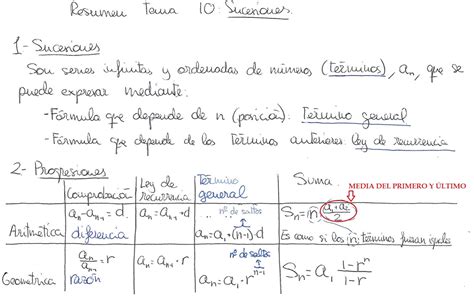 Resumen tema 10: Sucesiones
1- Sucesiones
Son series infinitas y ordenadas de números (términos), aₙ, que se
puede expresar mediante:
- Fórmula que depende de n (posición): Término general
- Fórmula que depende de los términos anteriores: ley de recurrencia
2- Progresiones
Comprobación
Ley de recurrencia
Término general
Suma
MEDIA DEL PRIMERO Y ÚLTIMO
Aritmética
aₙ-aₙ₋₁ = d
diferencia
aₙ = aₙ₋₁ + d
nº de saltos
aₙ = a₁ + (n-1)·d
Sₙ = n (a₁ + aₙ)/2
Es como si los n términos fueran iguales
Geométrica
aₙ/aₙ₋₁ = r
razón
aₙ = aₙ₋₁ · r
nº de saltos
aₙ = a₁ · rⁿ⁻¹
Sₙ = a₁ (1-rⁿ)/(1-r)